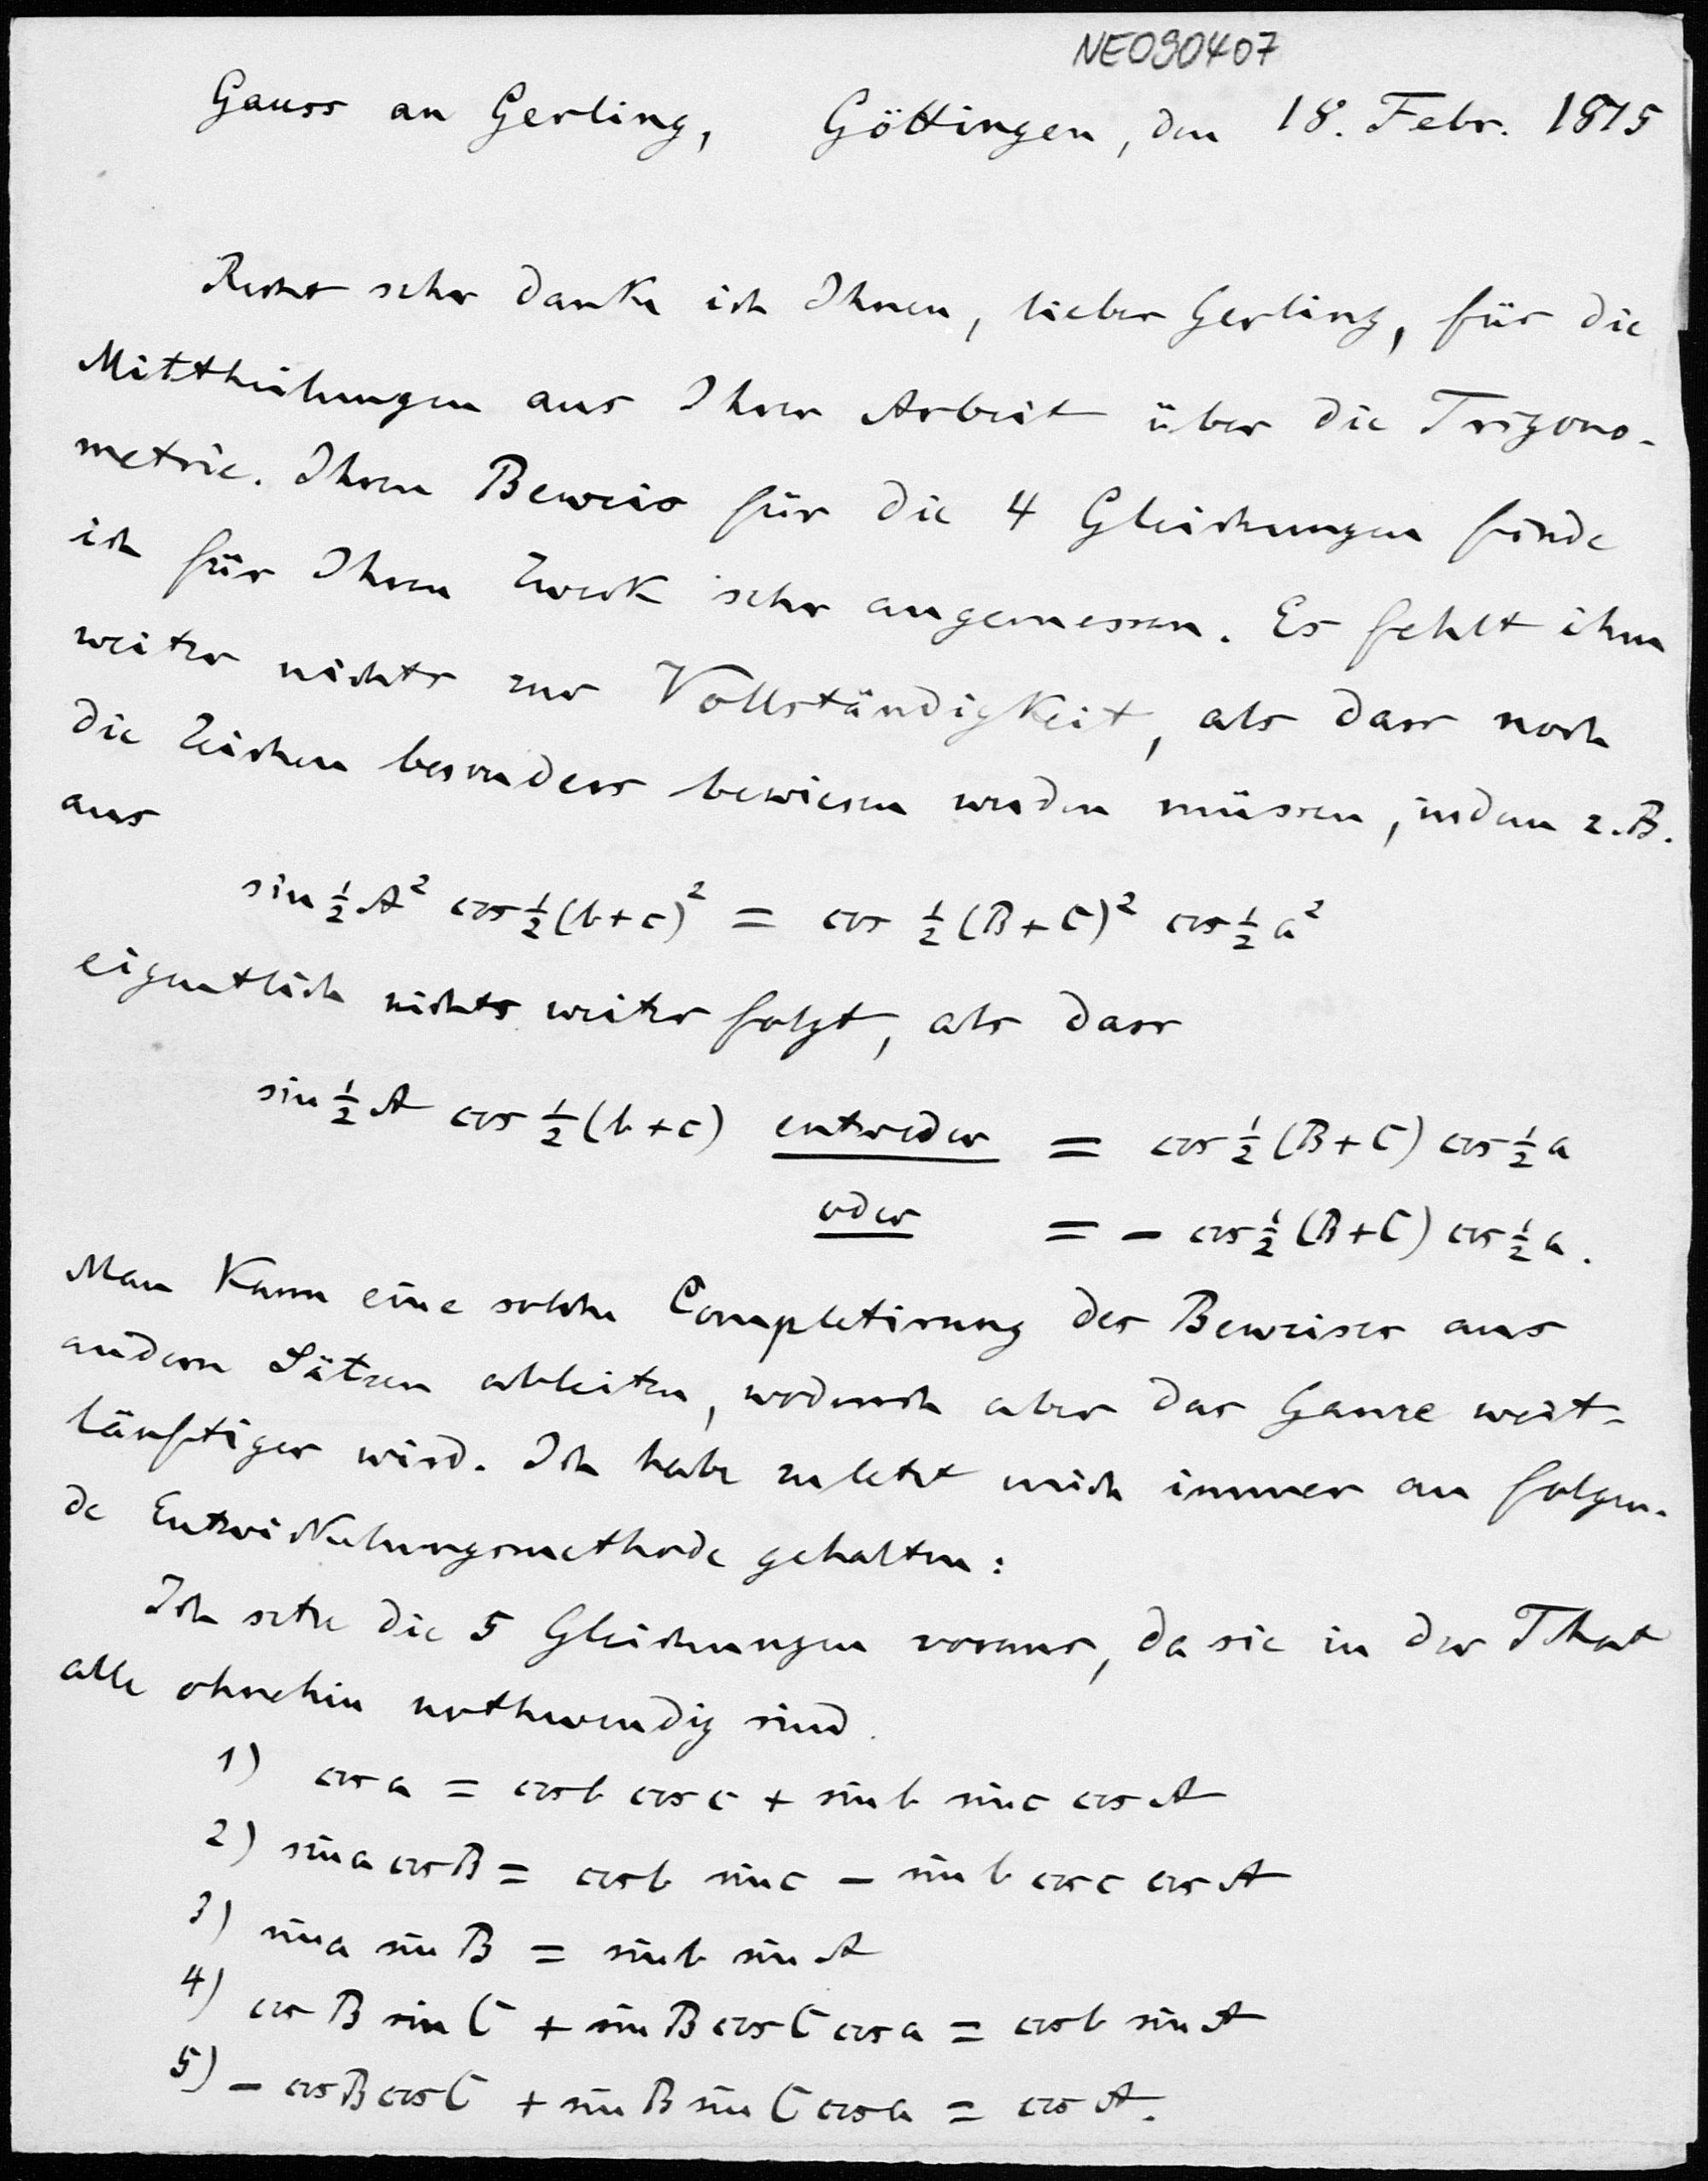 NE090407
Gauss an Gerling, Göttingen, den 18. Febr. 1815
Recht sehr danke ich Ihnen, lieber Gerling, für die
Mittheilungen aus Ihrer Arbeit über die Trigono-
metrie. Ihren Beweis für die 4 Gleichungen finde
ich für Ihren Zweck sehr angemessen. Es fehlt ihm
weiter nichts zur Vollständigkeit, als dass noch
die Zeichen besonders bewiesen werden müssen, indem z.B.
aus
sin ½ A² cos ½ (b+c)² = cos ½ (B+C)² cos ½ a²
eigentlich nichts weiter folgt, als dass
sin ½ A cos ½ (b+c) entweder = cos ½ (B+C) cos ½ a
oder = - cos ½ (B+C) cos ½ a.
Man kann eine solche Completirung des Beweises aus
andern Sätzen ableiten, wodurch aber das Ganze weit-
läuftiger wird. Ich habe zuletzt mich immer an folgen-
de Entwickelungsmethode gehalten:
Ich setze die 5 Gleichungen voraus, da sie in der That
alle ohnehin nothwendig sind.
1) cos a = cos b cos c + sin b sin c cos A
2) sin a cos B = cos b sin c - sin b cos c cos A
3) sin a sin B = sin b sin A
4) cos B sin C + sin B cos C cos a = cos b sin A
5) - cos B cos C + sin B sin C cos a = cos A.